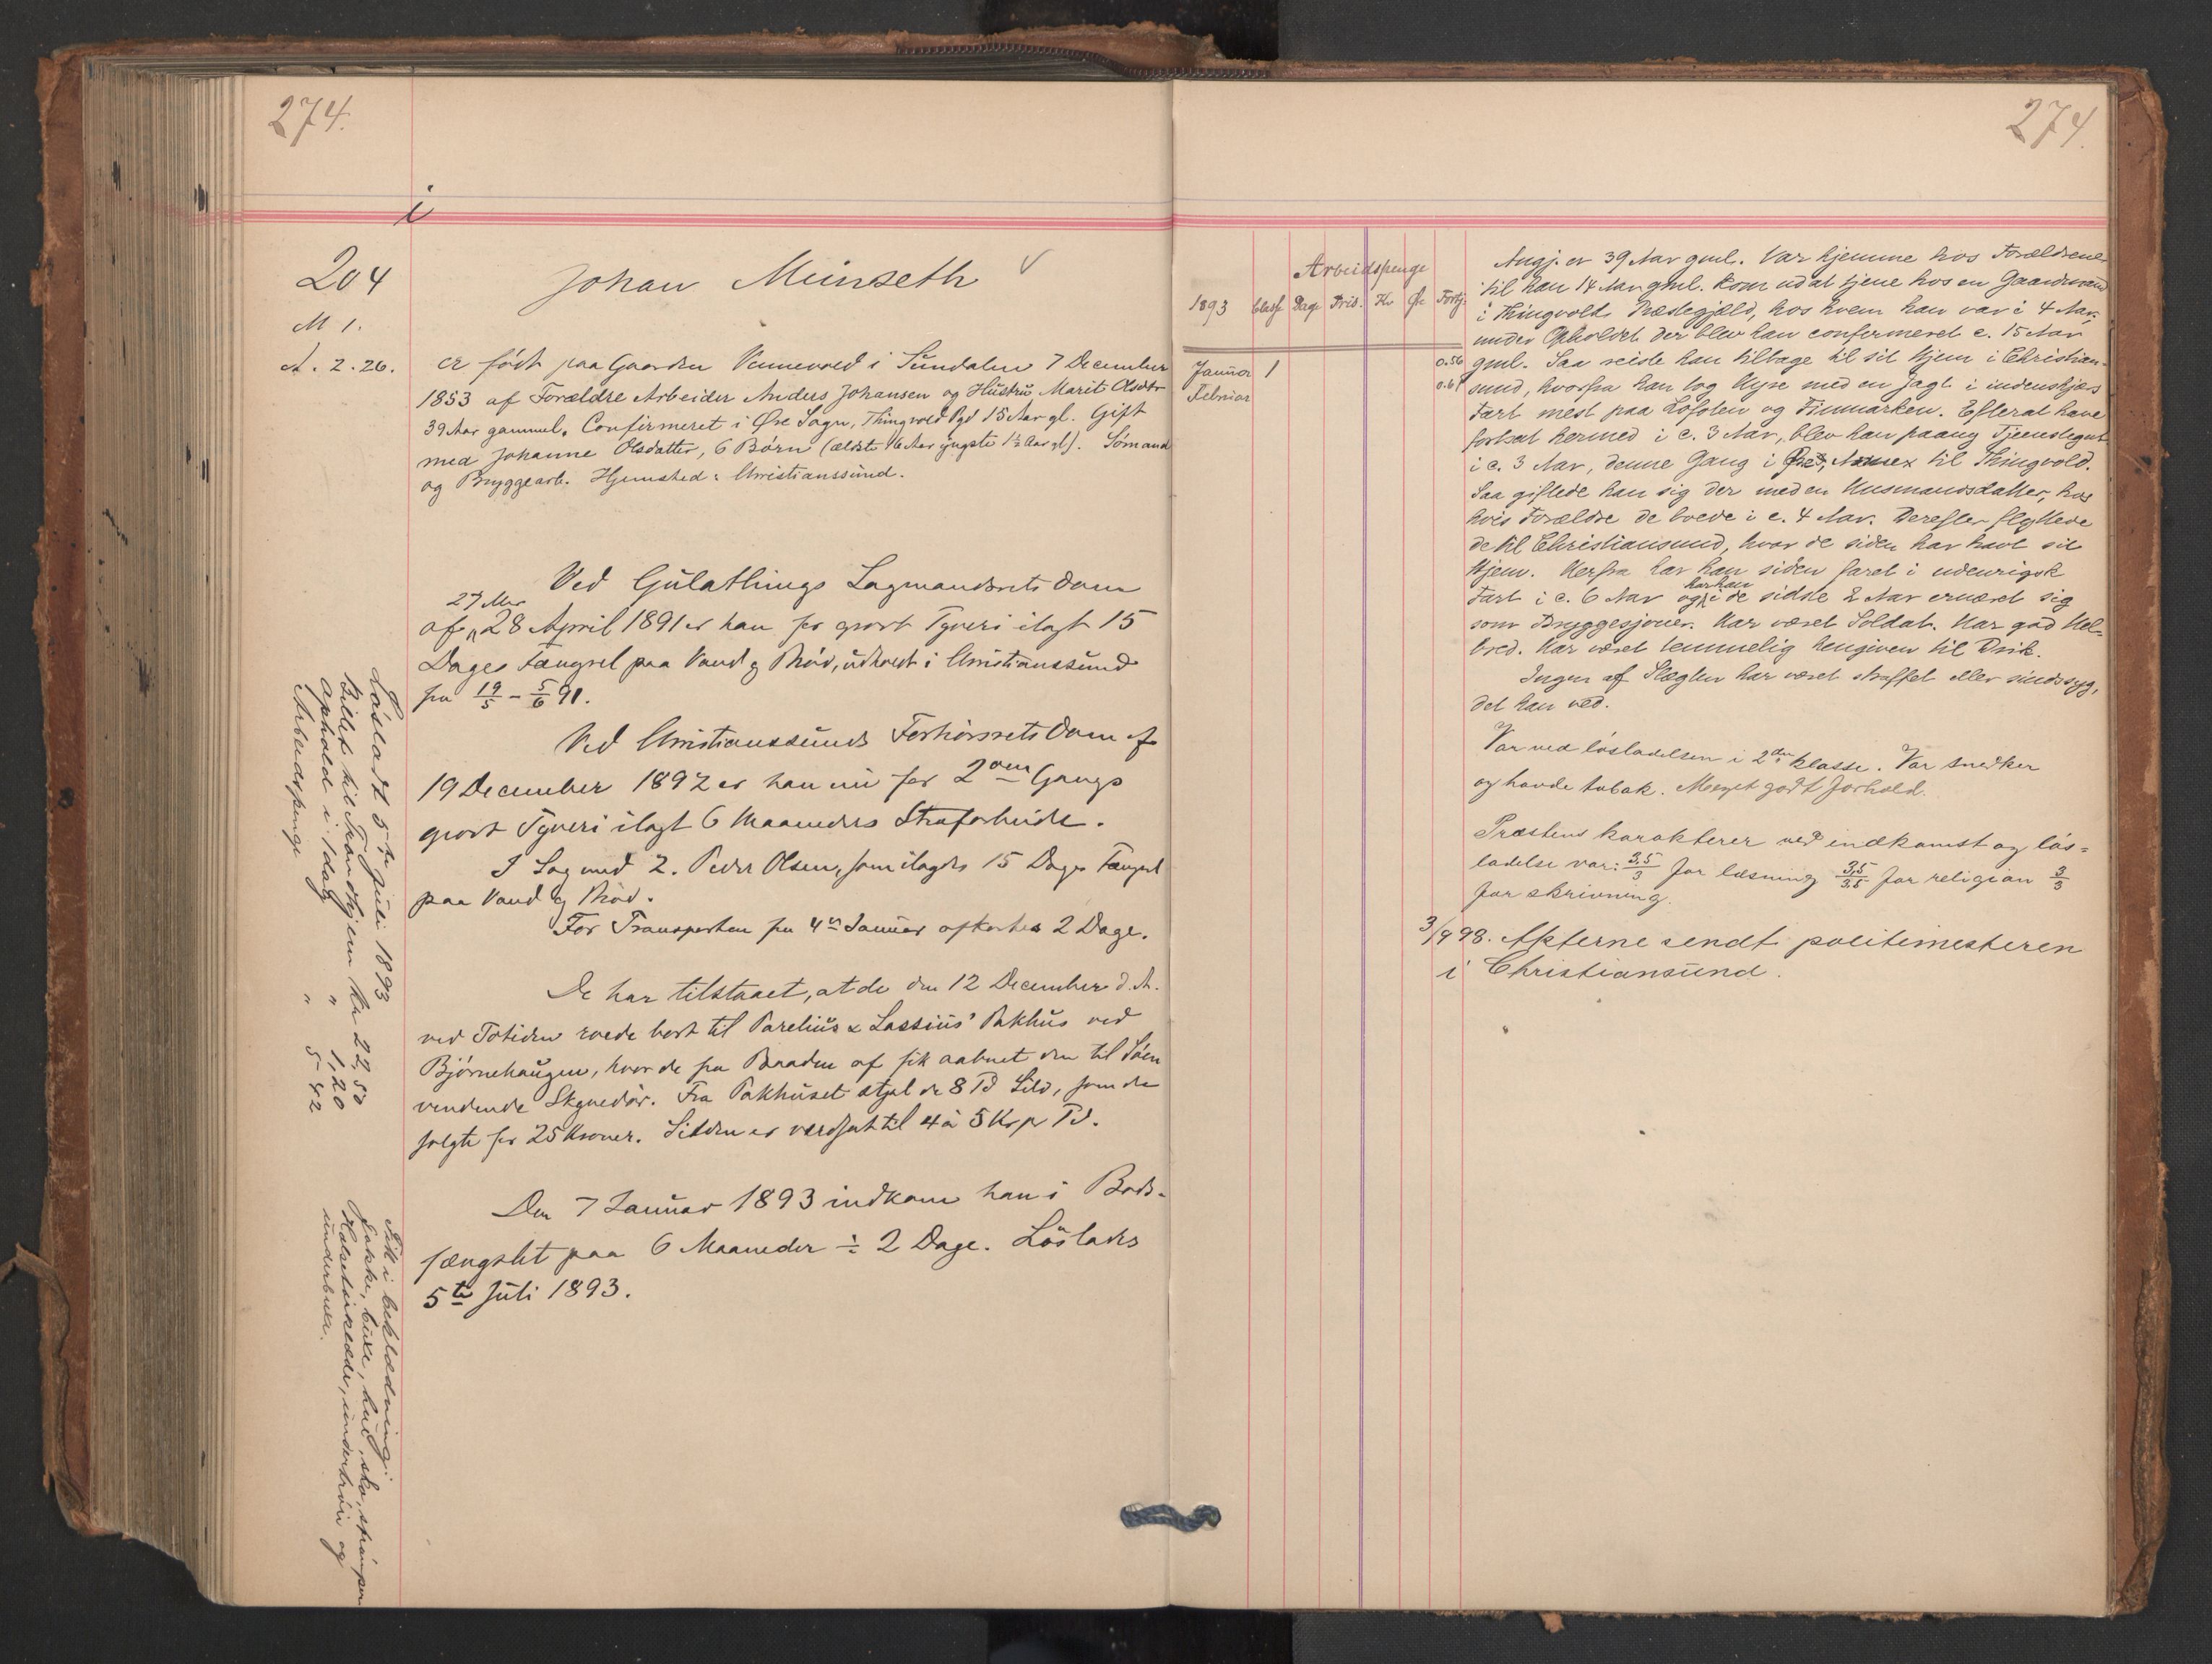 274.
i
204
M 1.
A. 2. 26.
Johan Meinseth
er født paa Gaarden Vennevold i Sundalen 7 December
1853 af Forældre Arbeider Anders Johansen og Hustru Marit Olsdtr
39 Aar gammel. Confirmeret i Øre Sogn, Thingvold Pgd 15 Aar gl. Gift
med Johanne Olsdatter, 6 Børn (ældste 16 Aar yngste 1½ Aar gl). Sømand
og Bryggearb. Hjemsted: Christianssund.
Ved Gulathings Lagmandsrets Dom
27 Mai
af 28 April 1891 er han for grovt Tyveri ilagt 15
Dages Fængsel paa Vand & Brød, udholdt i Christianssund
fra 19/5 - 5/6 91.
Ved Christianssunds Forhørsrets Dom af
19 December 1892 er han nu for 2den Gangs
grovt Tyveri ilagt 6 Maaneders Strafarbeide.
I Sag med 2. Peder Olsen, som ilagdes 15 Dages Fængsel
paa Vand & Brød.
For Transporten fra 4de Januar afkortes 2 Dage.
De har tilstaaet, at de den 12 December d. A.
ved Totiden roede bort til Parelius & Lassius' Pakhus ved
Bjørnehaugen, hvor de fra Baaden af fik aabnet den til Søen
vendende Skyvedør. Fra Pakhuset stjal de 8 Td Sild, som de
solgte for 25 Kroner. Silden er værdsat til 4 à 5 Kr pr Td.
Den 7 Januar 1893 indkom han i Bods-
fængslet paa 6 Maaneder ÷ 2 Dage. Løslades
5te Juli 1893.
Løsladt 5te juli 1893
Billet til Trondhjem Kr 22,50
Ophold i 1 dag " 1,20
Arbeidspenge " 5.42
Fik i beklædning:
Jakke, buxe, hue, sko, strømper
Halstørklæde, undertrøie og
underbuxe.
274.
Arbeidspenge
1893 Classe Dage Pris. Kr Øre Fortj.
Januar 1 0.56
Februar 0.61
Angj. er 39 Aar gml. Var hjemme hos Forældrene
til han 14 Aar gml. kom ud at tjene hos en Gaardmand
i Thingvold Præstegjæld, hos hvem han var i 4 Aar;
under Opholdet der blev han confirmeret c. 15 Aar
gml. Saa reiste han tilbage til sit Hjem i Christian-
sund, hvorfra han tog Hyre med en Jagt i indenskjærs
Fart mest paa Lofoten og Finmarken. Efterat have
fortsat hermed i c. 3 Aar, blev han paany Tjenestegut
i c. 3 Aar, denne Gang i Øre, Annex til Thingvold.
Saa giftede han sig der med en Husmandsdatter, hos
hvis Forældre de boede i c. 4 Aar. Derefter flyttede
de til Christiansund, hvor de siden har havt sit
Hjem. Herfra har han siden faret i udenrigsk
har han
Fart i c. 6 Aar og i de sidste 2 Aar ernæret sig
som Bryggesjouer. Har været Soldat. Har god Hel-
bred. Har været temmelig hengiven til Drik.
Ingen af Slægten har været straffet eller sindssyg,
det han ved.
Var ved løsladelsen i 2den klasse. Var snedker
og havde tobak. Meget godt forhold.
Præstens karakterer ved indkomst og løs-
ladelse var: 3,5/3 for læsning 3,5/3.5 for religion 3/3
for skrivning.
3/9 98. Akterne sendt politimesteren
i Christiansund.